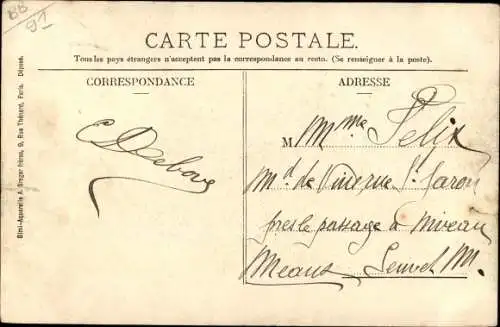 BB
91
CARTE POSTALE.
Tous les pays étrangers n'acceptent pas la correspondance au recto. (Se renseigner à la poste).
CORRESPONDANCE
ADRESSE
Simi-Aquarelle A. Breger frères, 9, Rue Thénard, Paris. Déposé.
E Debove
M Mme Félix
Md de St. Faron
près le passage à Niveau
Meaux